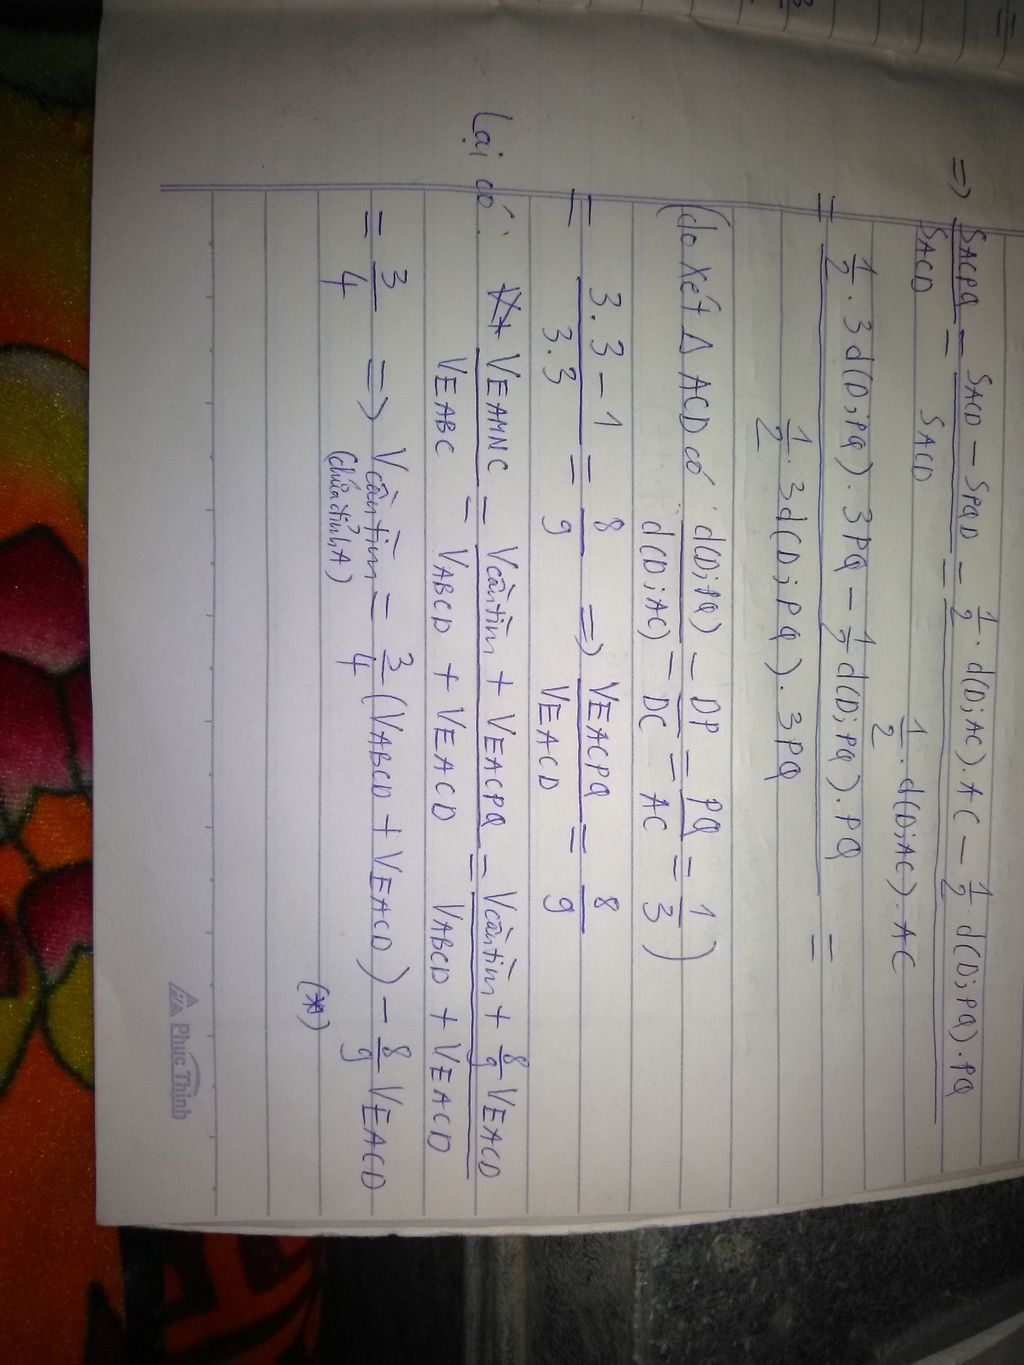 => SACPQ / SACD = SACD - SPQD / SACD = 1/2 . d(D;AC).AC - 1/2 . d(D;PQ).PQ / 1/2 . d(D;AC).AC
= 1/2 . 3d(D;PQ) . 3PQ - 1/2 d(D;PQ).PQ / 1/2 . 3d(D;PQ) . 3PQ =
(do xét Δ ACD có : d(D;PQ) / d(D;AC) = DP / DC = PQ / AC = 1/3 )
= 3.3 - 1 / 3.3 = 8/9 => VEACPQ / VEACD = 8/9
Lại có : VEAMNC / VEABC = Vcần tìm + VEACPQ / VABCD + VEACD = Vcần tìm + 8/9 VEACD / VABCD + VEACD
= 3/4 => Vcần tìm = 3/4 (VABCD + VEACD) - 8/9 VEACD
(chứa đỉnh A) (**)
Phuc Thinh